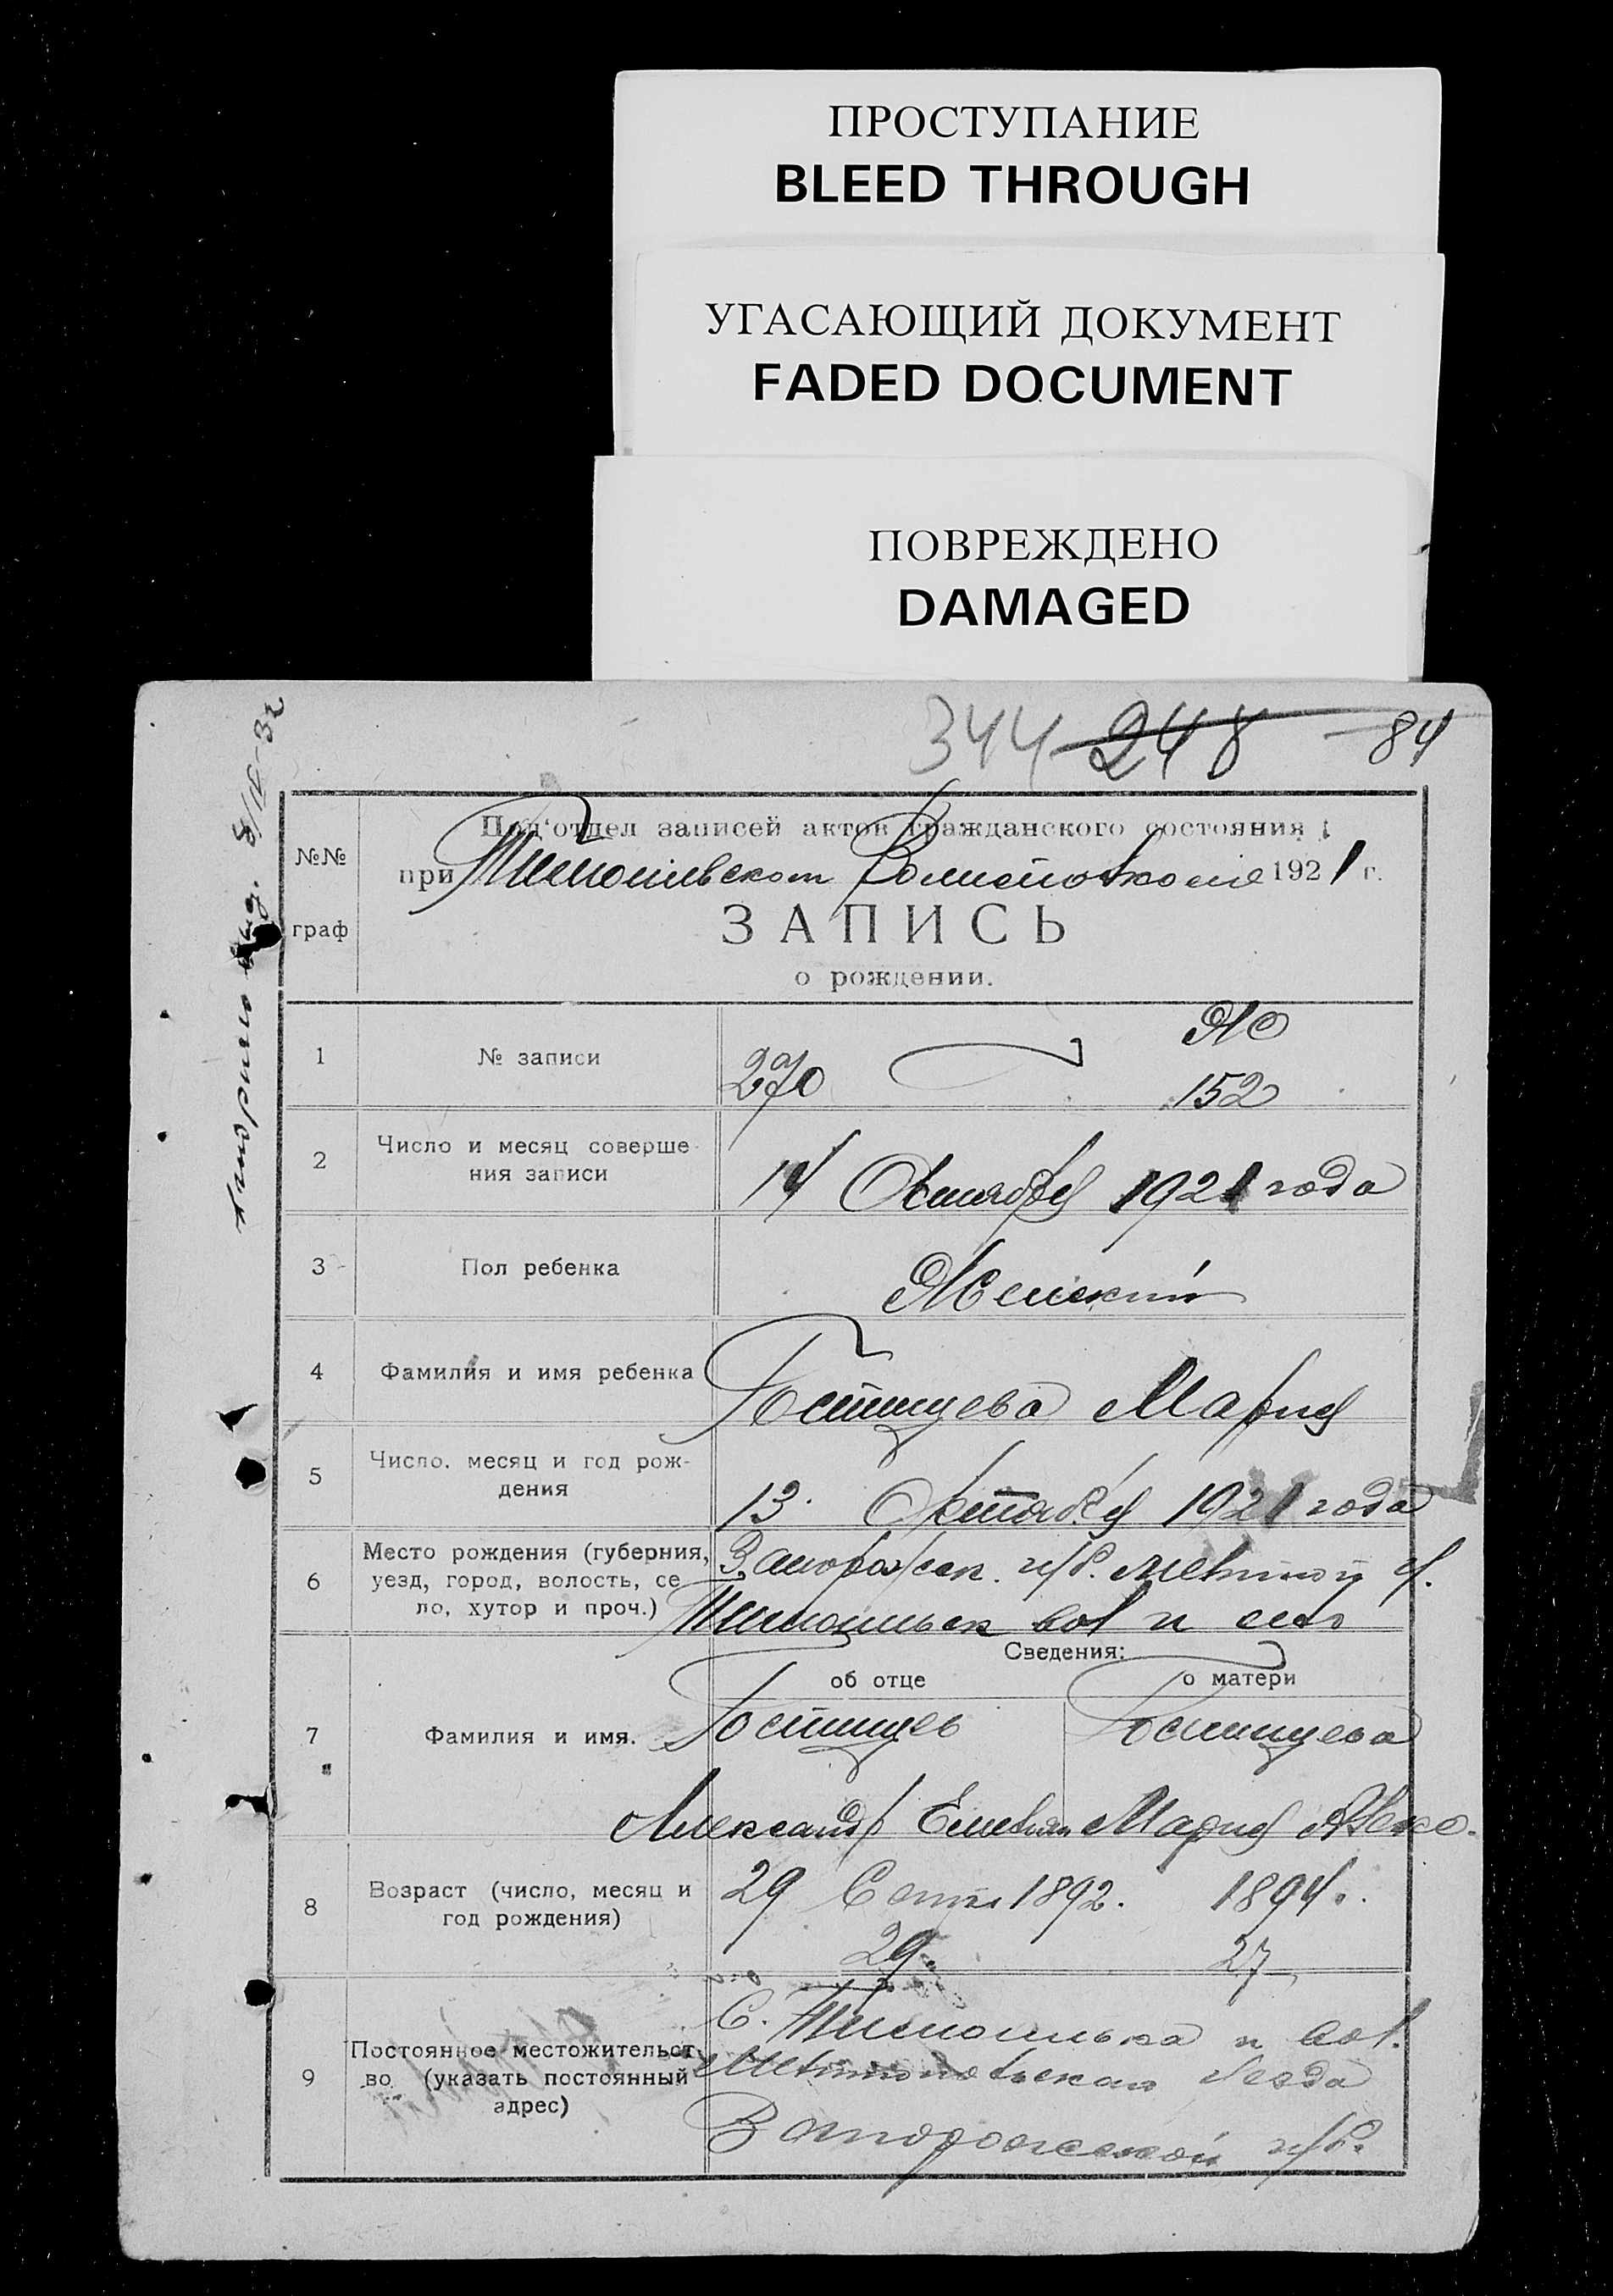 ПРОСТУПАНИЕ
BLEED THROUGH
УГАСАЮЩИЙ ДОКУМЕНТ
FADED DOCUMENT
ПОВРЕЖДЕНО
DAMAGED
344 248 84
8/IV-32
№№
граф
Под'отдел записей актов гражданского состояния
при Тимошивском 1921 г.
ЗАПИСЬ
о рождении.
1
№ записи
270
Ж
152
2
Число и месяц соверше-
ния записи
14 Октября 1921 года
3
Пол ребенка
Женский
4
Фамилия и имя ребенка
Гостищева Мария
5
Число, месяц и год рож-
дения
13. Октября 1921 года
6
Место рождения (губерния,
уезд, город, волость, се
ло, хутор и проч.)
Запорожск. г/б. Мелитоп у.
вол и село
Сведения:
об отце
о матери
7
Фамилия и имя.
Гостищев
Гостищева
Александр Емельян
Мария
8
Возраст (число, месяц и
год рождения)
29 1892.
1894.
29.
27
9
Постоянное местожительст
во (указать постоянный
адрес)
С. Тимошивка и вол.
Мелитопольскаго уезда
Запорожской г/б.